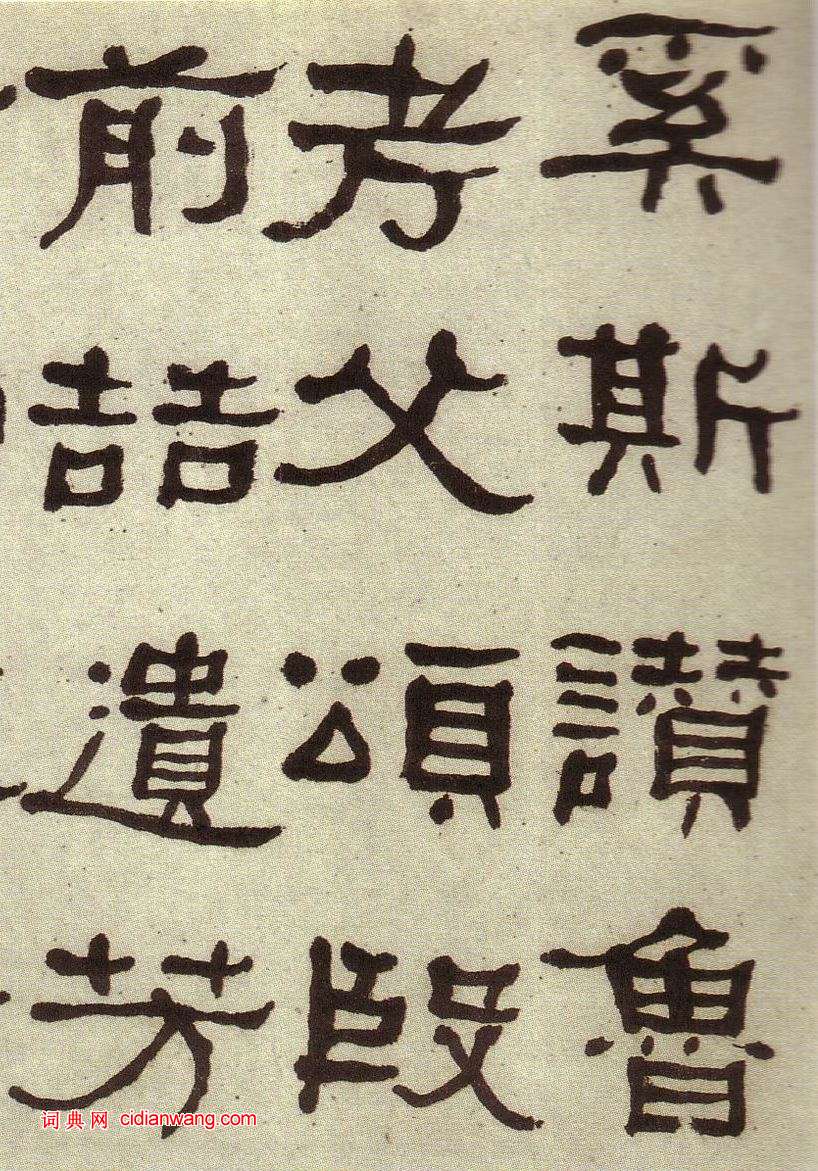 奚斯讚魯
考父頌殷
前喆遺芳
词典网 cidianwang.com